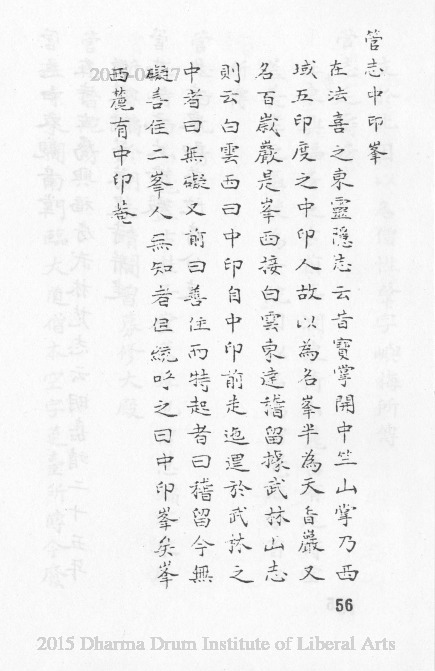 管志中印峯
在法喜之東靈隱志云昔寶掌開中竺山掌乃西
域五印度之中印人故以為名峯半為天香巖又
名百歲巖是峯西接白雲東達稽留據武林山志
則云白雲西曰中印自中印前走迤邐於武林之
中者曰無礙又前曰善住而特起者曰稽留今無
礙善住二峯人無知者但統呼之曰中印峯矣峯
西麓有中印菴
56
2015 Dharma Drum Institute of Liberal Arts